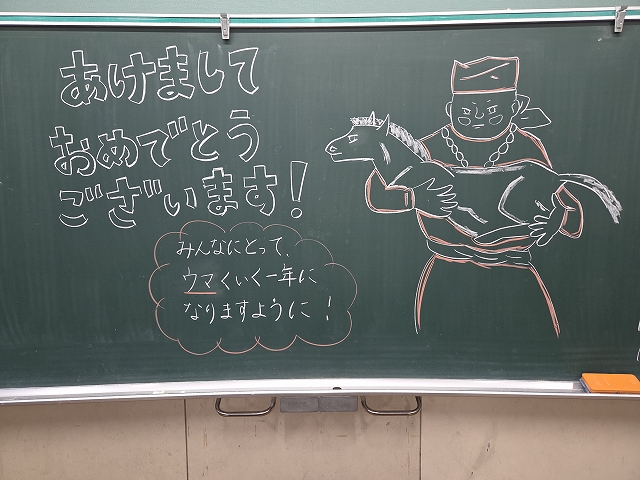 あけまして
おめでとう
ございます!
みんなにとって、
ウマくいく一年に
なりますように!